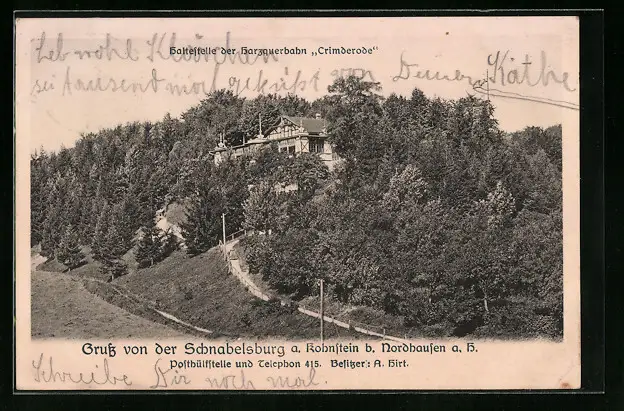 Haltestelle der Harzquerbahn „Crimderode“
Leb wohl
sei tausend mal geküßt von Deiner Käthe
Gruß von der Schnabelsburg a. Kohnstein b. Nordhausen a. H.
Posthülfstelle und Telephon 415. Besitzer: A. Hirt.
Schreibe Dir noch mal.